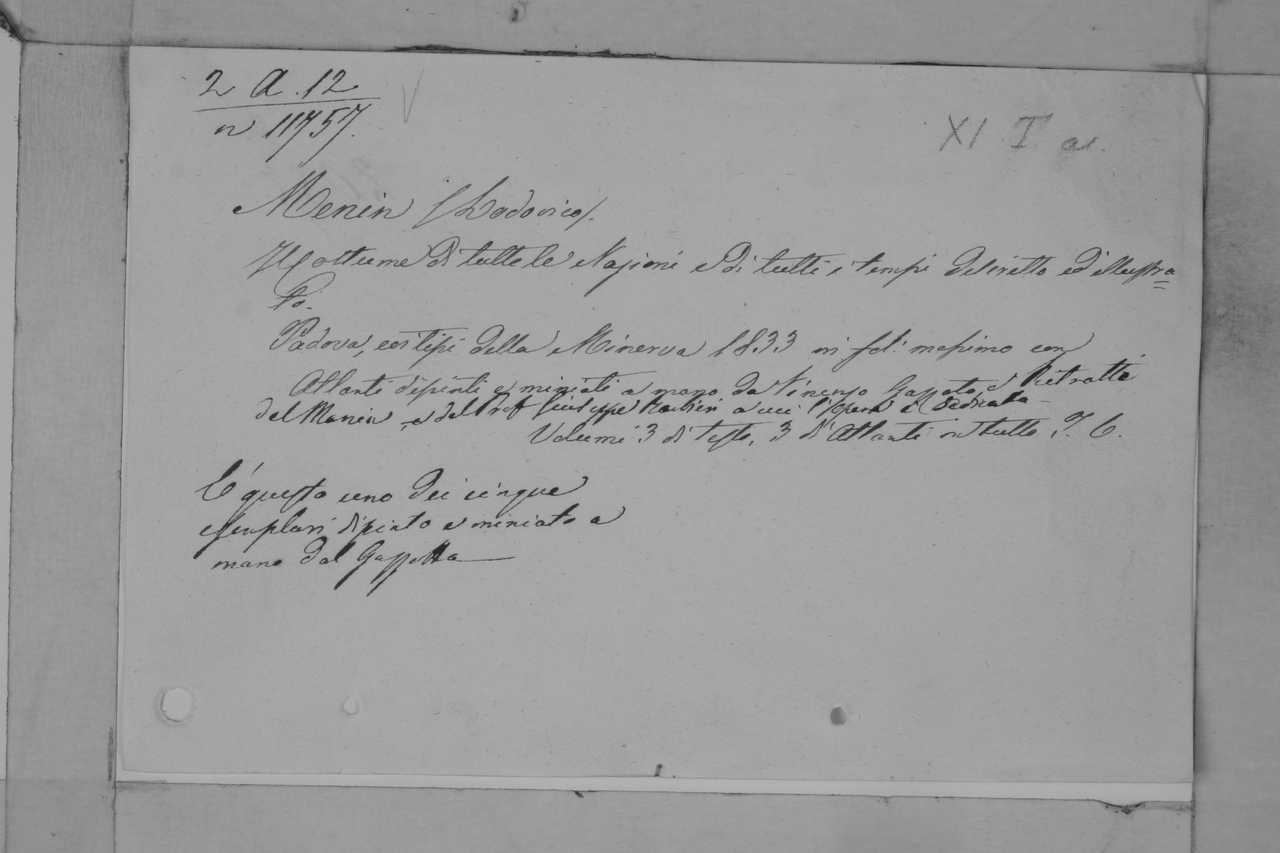 2 A. 12
n 11757.
XI I a.
Menin (Lodovico).
Il Costume di tutte le Nazioni e di tutti i tempi descritto ed illustra=
to.
Padova, coi tipi della Minerva 1833 in fol. massimo con
Atlanti dipinti e miniati a mano da Vincenzo Gazzotto, e Ritratti
del Menin, e del Prof Giuseppe a cui l'Opera è Dedicata
Volumi 3 di testo, 3 d'Atlanti in tutto T. 6.
E' questo uno dei cinque
esemplari dipinto e miniato a
mano dal Gazzotto